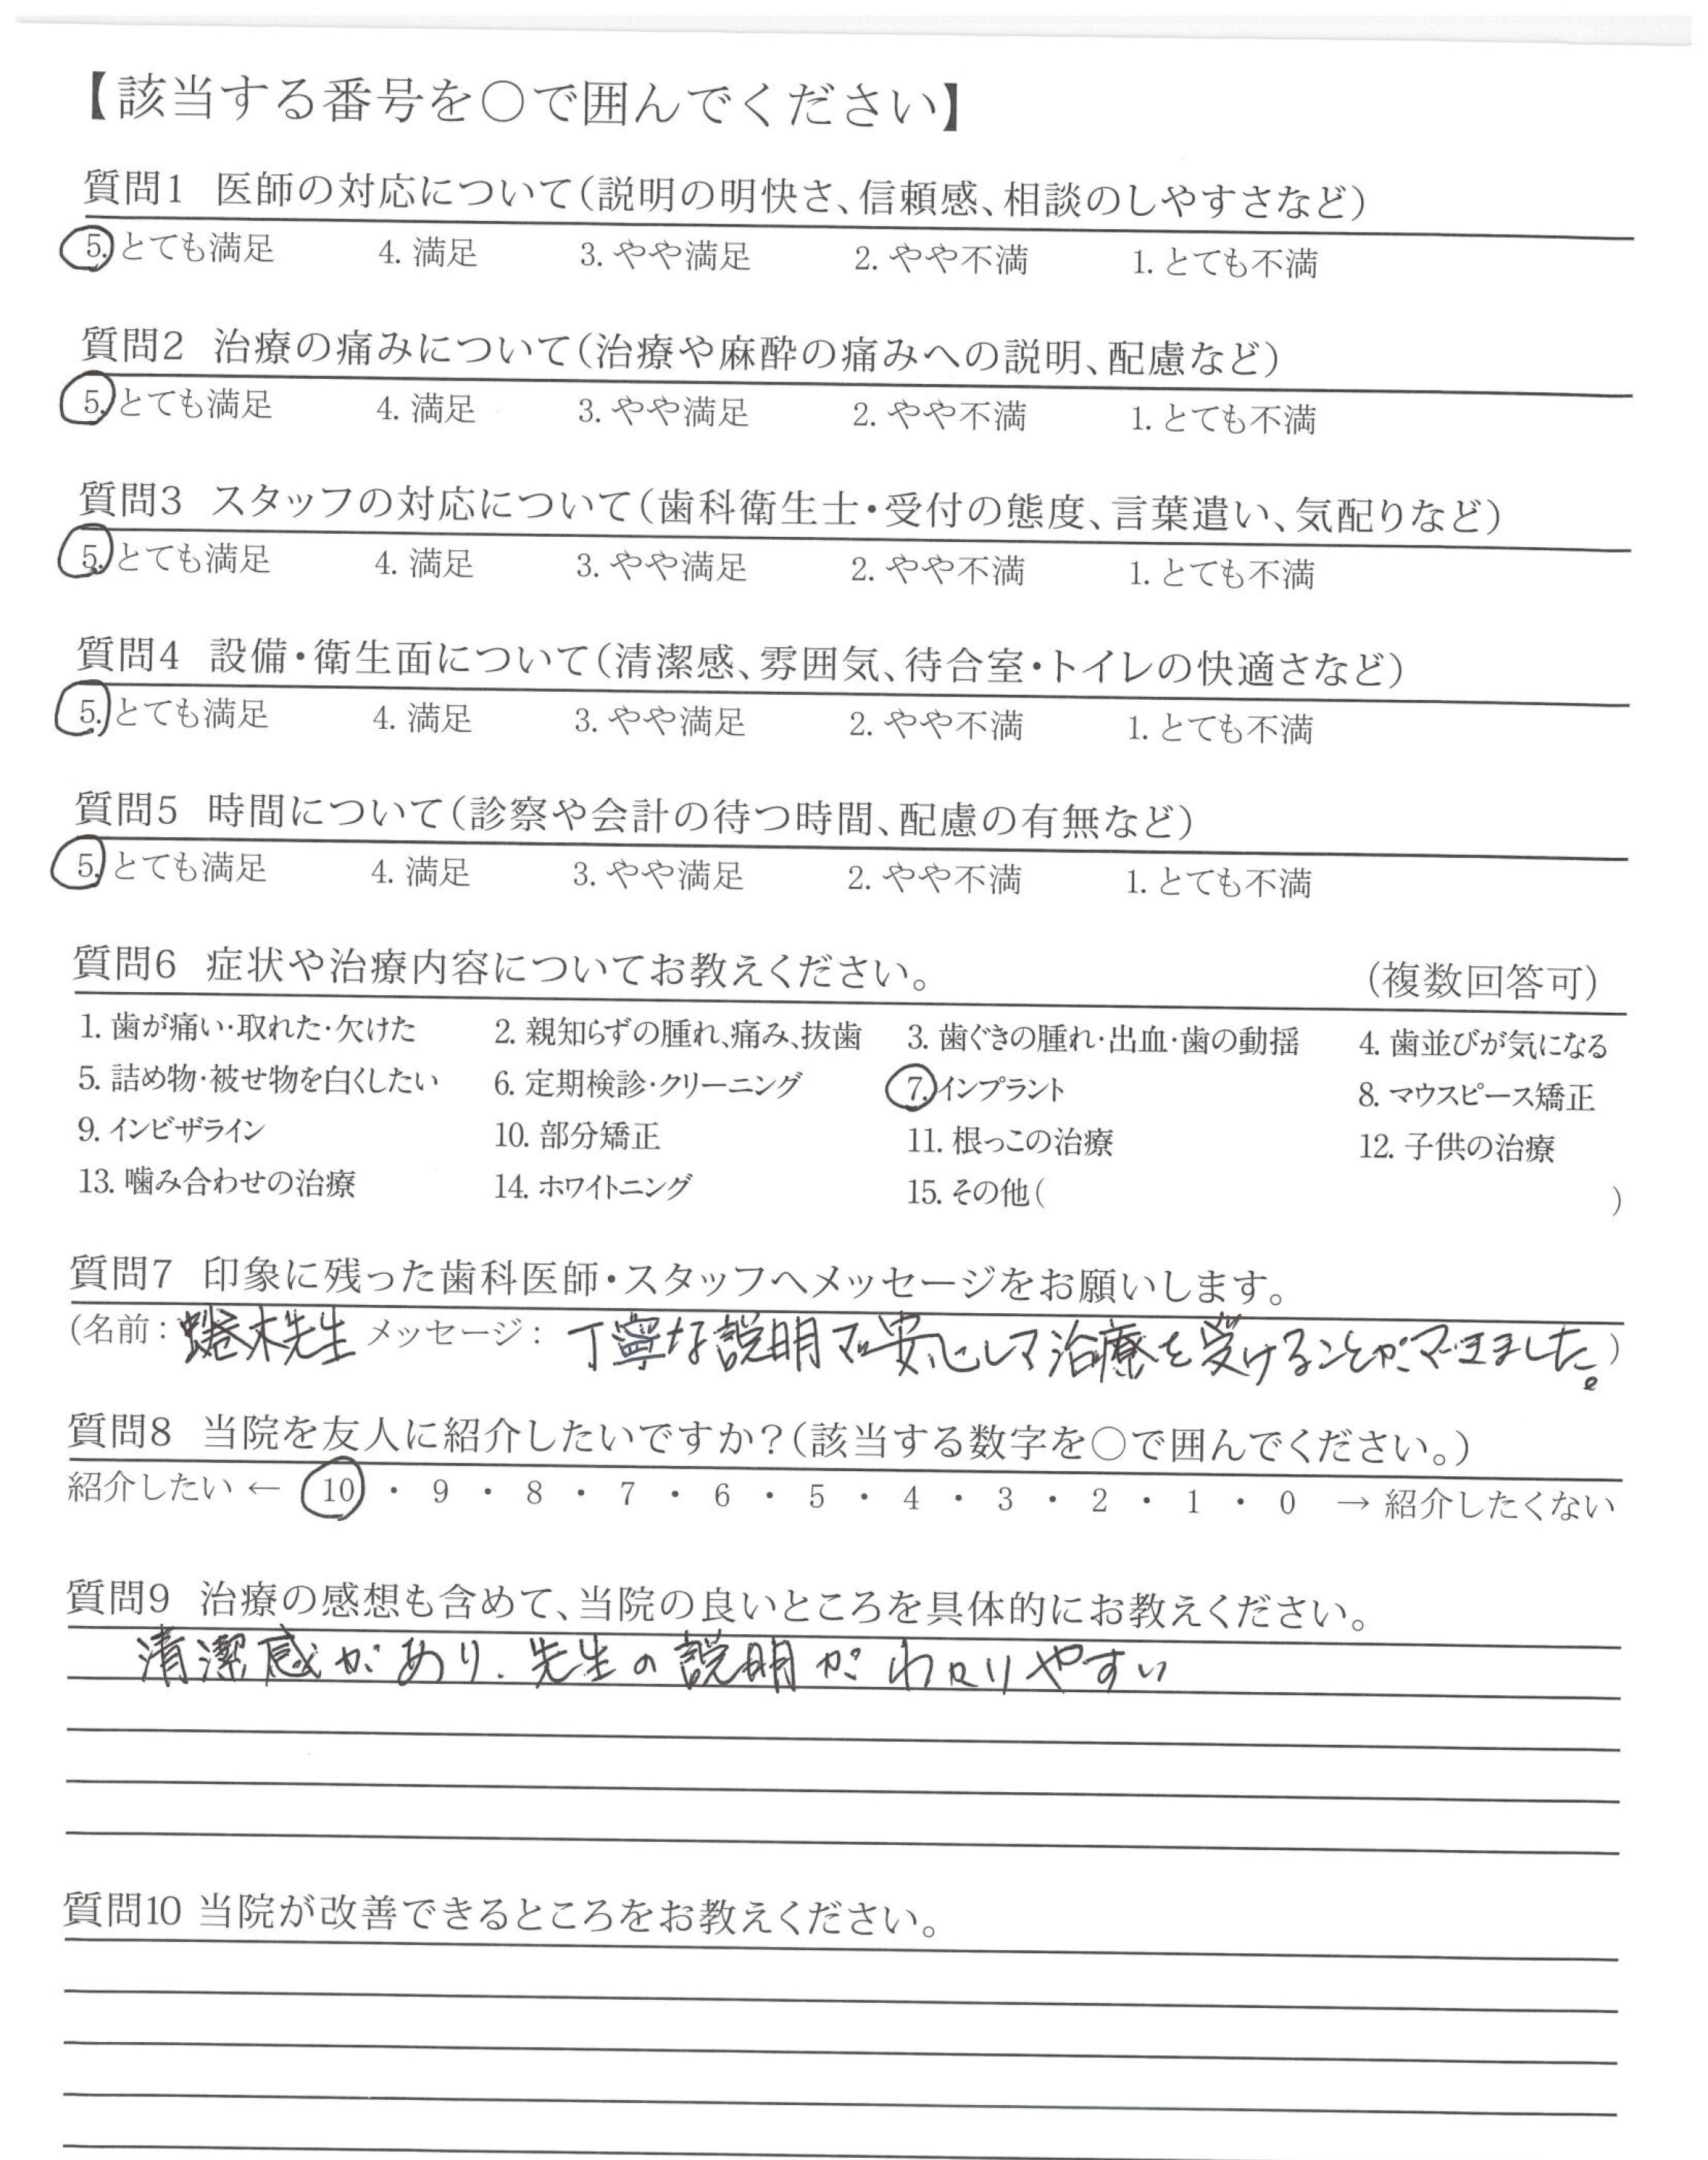 【該当する番号を○で囲んでください】
質問1 医師の対応について（説明の明快さ、信頼感、相談のしやすさなど）
5. とても満足 4. 満足 3. やや満足 2. やや不満 1. とても不満
質問2 治療の痛みについて（治療や麻酔の痛みへの説明、配慮など）
5. とても満足 4. 満足 3. やや満足 2. やや不満 1. とても不満
質問3 スタッフの対応について（歯科衛生士・受付の態度、言葉遣い、気配りなど）
5. とても満足 4. 満足 3. やや満足 2. やや不満 1. とても不満
質問4 設備・衛生面について（清潔感、雰囲気、待合室・トイレの快適さなど）
5. とても満足 4. 満足 3. やや満足 2. やや不満 1. とても不満
質問5 時間について（診察や会計の待つ時間、配慮の有無など）
5. とても満足 4. 満足 3. やや満足 2. やや不満 1. とても不満
質問6 症状や治療内容についてお教えください。 （複数回答可）
1. 歯が痛い・取れた・欠けた 2. 親知らずの腫れ、痛み、抜歯 3. 歯ぐきの腫れ・出血・歯の動揺 4. 歯並びが気になる
5. 詰め物・被せ物を白くしたい 6. 定期検診・クリーニング 7. インプラント 8. マウスピース矯正
9. インビザライン 10. 部分矯正 11. 根っこの治療 12. 子供の治療
13. 噛み合わせの治療 14. ホワイトニング 15. その他（ ）
質問7 印象に残った歯科医師・スタッフへメッセージをお願いします。
（名前：木先生 メッセージ： 丁寧な説明で安心して治療を受けることができました。）
質問8 当院を友人に紹介したいですか？（該当する数字を○で囲んでください。）
紹介したい ← 10 ・ 9 ・ 8 ・ 7 ・ 6 ・ 5 ・ 4 ・ 3 ・ 2 ・ 1 ・ 0 → 紹介したくない
質問9 治療の感想も含めて、当院の良いところを具体的にお教えください。
清潔感があり、先生の説明がわかりやすい
質問10 当院が改善できるところをお教えください。